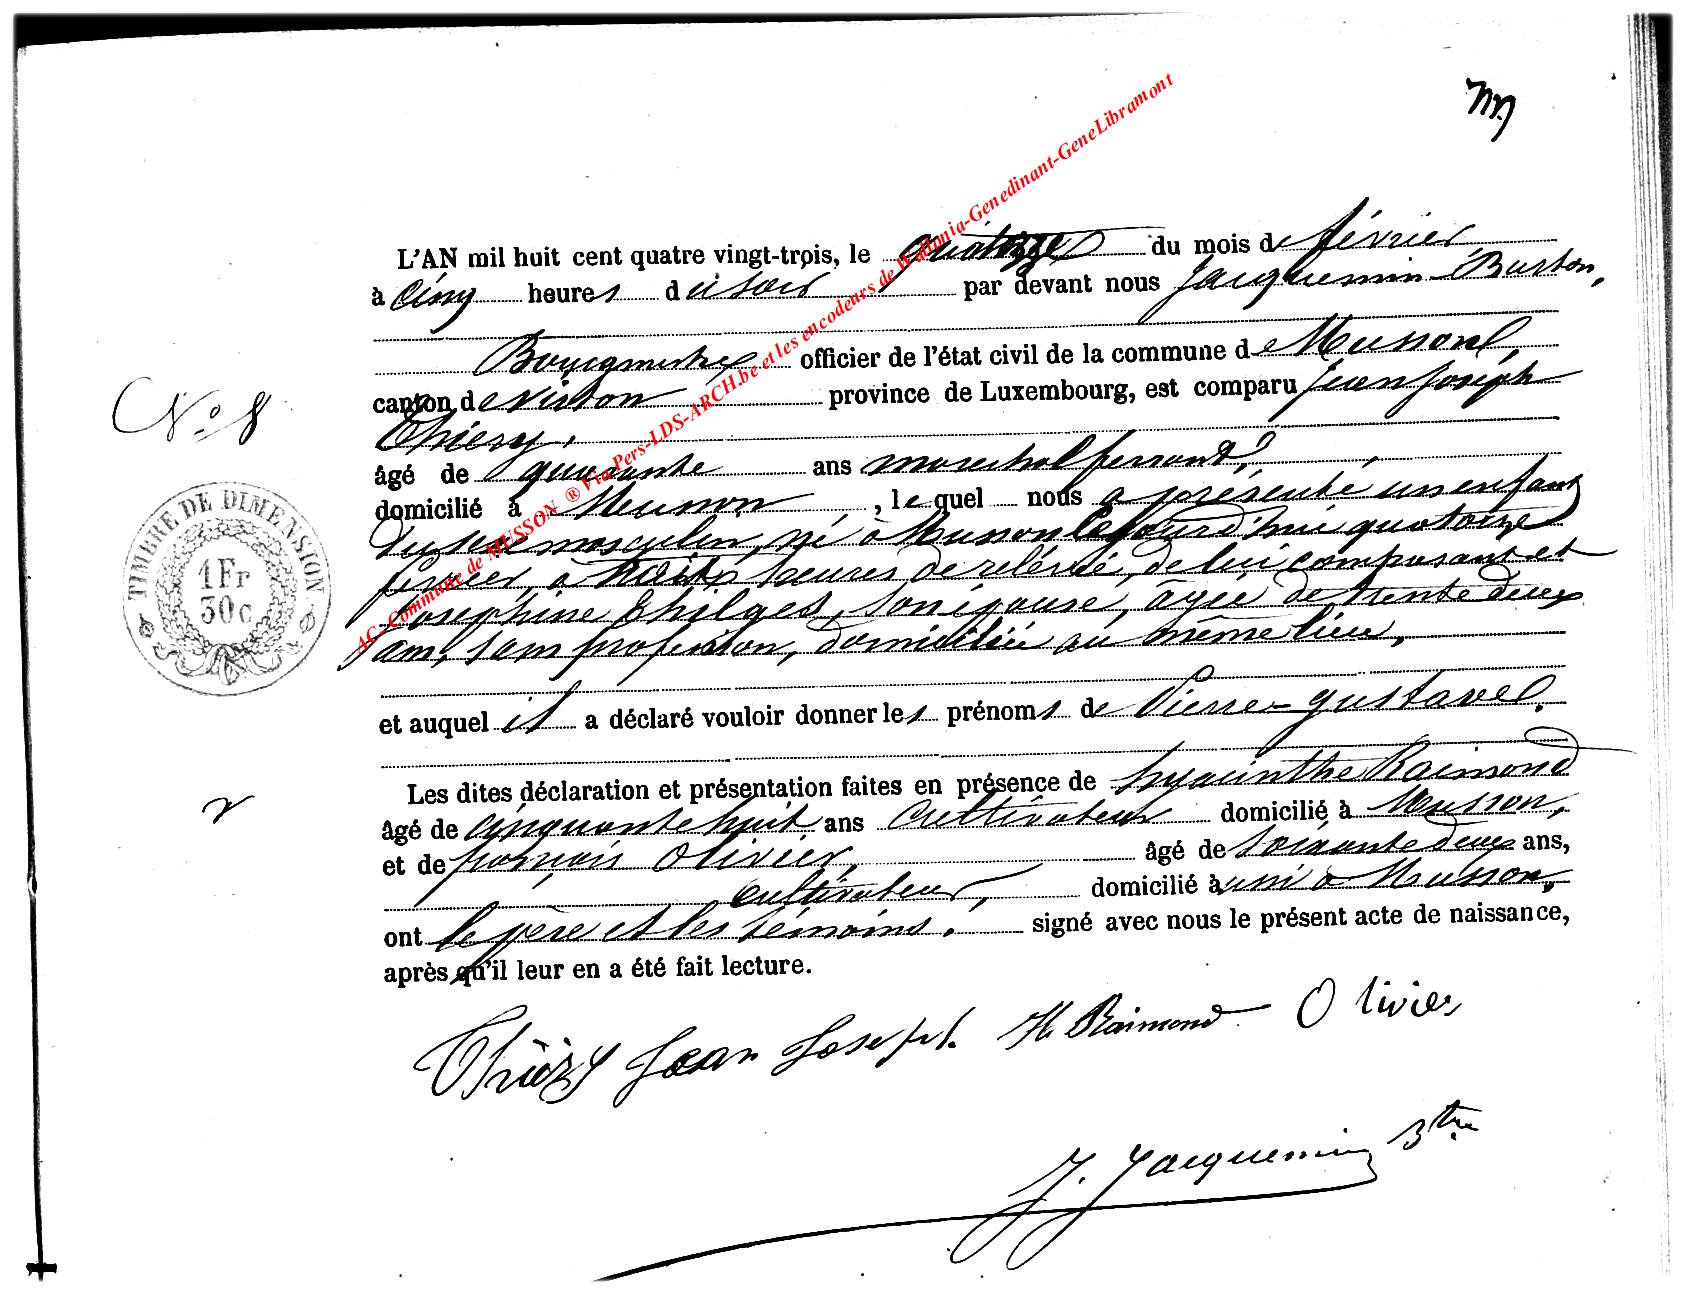 L'AN mil huit cent quatre vingt-trois, le quatorze du mois de février
à cinq heures du soir par devant nous Jacquemin-Burton,
Bourgmestre officier de l'état civil de la commune de Musson,
canton de Virton province de Luxembourg, est comparu Jean Joseph
Thiéry,
N° 8
âgé de quarante ans maréchal ferrant,
domicilié à Musson, lequel nous a présenté un enfant
du sexe masculin, né à Musson le jourd'hui quatorze
février, à trois heures de relevée, de lui comparant et
Josephine Thilges, son épouse, âgée de trente deux
ans, sans profession, domiciliée au même lieu,
et auquel il a déclaré vouloir donner les prénoms de Pierre-Gustave.
Les dites déclaration et présentation faites en présence de hyacinthe Raimond
âgé de cinquante huit ans cultivateur domicilié à Musson,
et de françois Olivier, âgé de soixante deux ans,
cultivateur, domicilié aussi à Musson,
ont le père et les témoins, signé avec nous le présent acte de naissance,
après qu'il leur en a été fait lecture.
Thiéry Jean Joseph. H. Raimond Olivier
J. Jacquemin Btre
TIMBRE DE DIMENSION
1Fr
30c
AC-Commune de MUSSON ® Via Pers-LDS-ARCH.be et les encodeurs de Wallonia-Genedinant-GeneLibramont